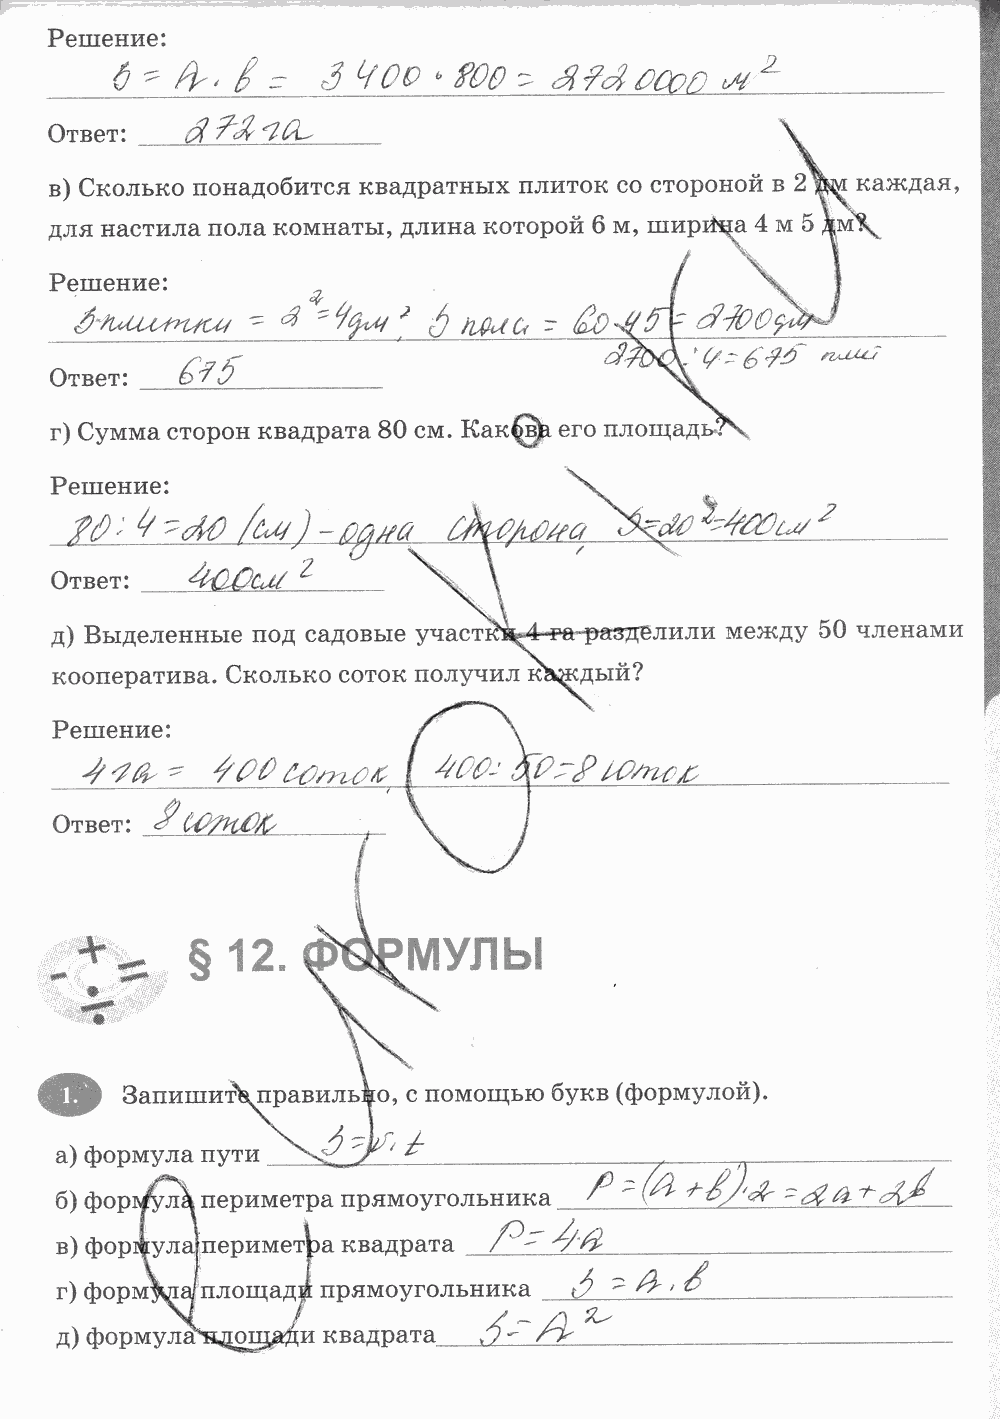 Решение:
S = a · b = 3400 · 800 = 2720000 м²
Ответ: 272 га
в) Сколько понадобится квадратных плиток со стороной в 2 дм каждая,
для настила пола комнаты, длина которой 6 м, ширина 4 м 5 дм?
Решение:
S плитки = 2² = 4 дм², S пола = 60 · 45 = 2700 дм
2700 : 4 = 675 плит
Ответ: 675
г) Сумма сторон квадрата 80 см. Какова его площадь?
Решение:
80 : 4 = 20 (см) – одна сторона, S = 20² = 400 см²
Ответ: 400 см²
д) Выделенные под садовые участки 4 га разделили между 50 членами
кооператива. Сколько соток получил каждый?
Решение:
4 га = 400 соток, 400 : 50 = 8 соток
Ответ: 8 соток
§ 12. ФОРМУЛЫ
1. Запишите правильно, с помощью букв (формулой).
а) формула пути S = v · t
б) формула периметра прямоугольника P = (a + b) · 2 = 2a + 2b
в) формула периметра квадрата P = 4a
г) формула площади прямоугольника S = a · b
д) формула площади квадрата S = a²